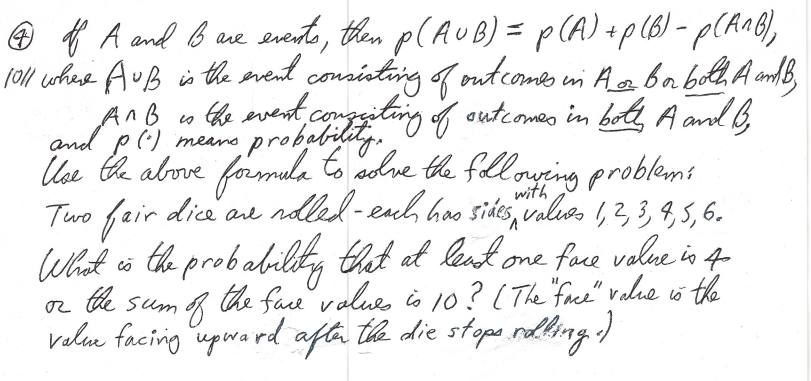 ④ If A and B are events, then p(A∪B) = p(A)+p(B)-p(A∩B),
10// where A∪B is the event consisting of outcomes in A or B or both A and B,
A∩B is the event consisting of outcomes in both A and B,
and p(·) means probability.
Use the above formula to solve the following problem:
Two fair dice are rolled - each has sides, with values 1, 2, 3, 4, 5, 6.
What is the probability that at least one face value is 4
or the sum of the face values is 10? (The "face" value is the
value facing upward after the die stops rolling.)